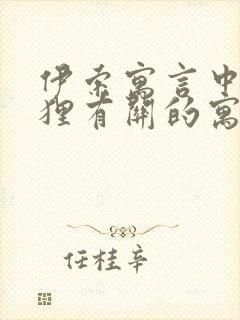 伊索寓言中
狸有關的寓
任桂辛